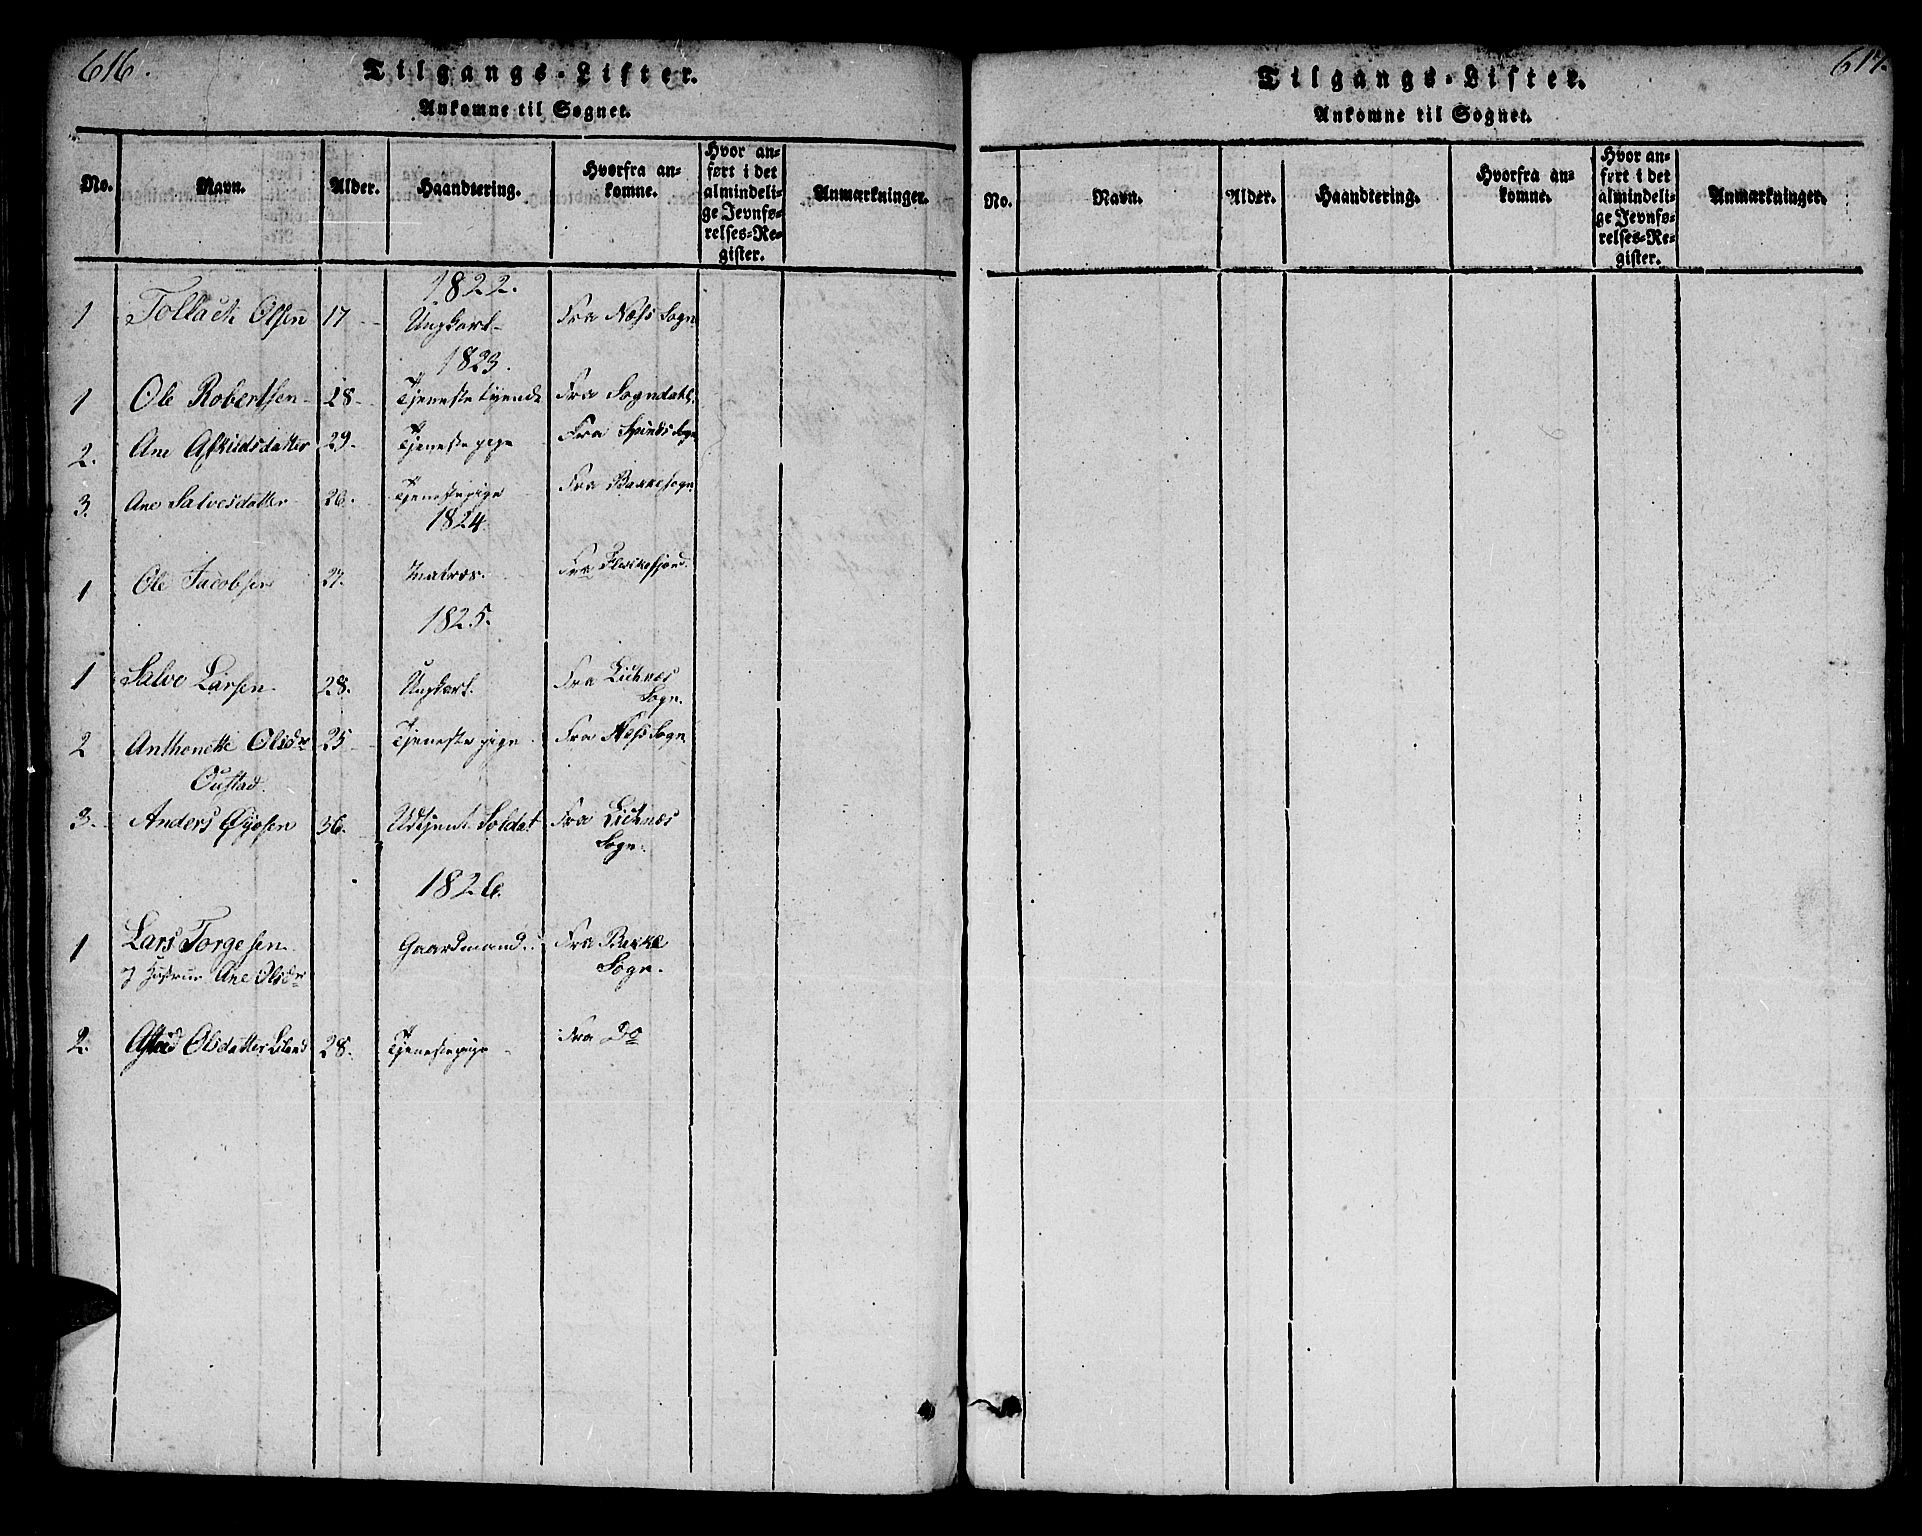 616.
Tilgangs-Lister.
Ankomne til Sognet.
No. Navn. Alder. Haandtering. Hvorfra an-
komne. Hvor an-
ført i det
almindeli-
ge Jevnfø-
relses-Re-
gister. Anmærkninger.
1822.
1 Tollach Olsen 17 Ungkarl Fra Næss Sogn
1823.
1 Ole Robertsen 28 Tjenestetyende Fra Sogndahl
2. Ane Asuldsdatter 29 Tjenestepige Fra Sogn
3. Ane Salvesdatter 26. Tjenestepige Fra Bakke Sogn
1824
1 Ole Jacobsen 27. Matros. Fra Flekkefjord.
1825.
1 Salve Larsen 28. Ungkarl. Fra Liknæs
Sogn.
2 Anthonette Olsdr 25 Tjenestepige Fra Næss Sogn
Oustad.
3. Anders Øyesen 36. Udtjent Soldat Fra Liknæs
Sogn.
1826.
1 Lars Torgesen Gaardmand. Fra Bakke
Sogn.
og Hustrue Ane Olsdr
2. Astrid Olsdatter Eiland 28. Tjenestepige Fra Do
617.
Tilgangs-Lister.
Ankomne til Sognet.
No. Navn. Alder. Haandtering. Hvorfra an-
komne. Hvor an-
ført i det
almindeli-
ge Jevnfø-
relses-Re-
gister. Anmærkninger.